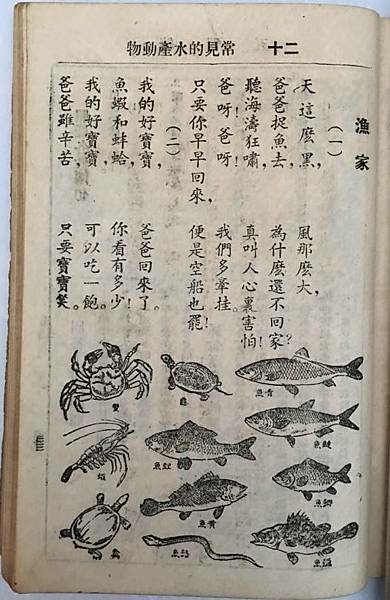 二十 常見的水產動物
漁家
(一)
天這麼黑, 風那麼大,
爸爸捉魚去, 為什麼還不回家?
聽海濤狂嘯, 真叫人心裏害怕!
爸呀!爸呀! 我們多牽挂。
只要你早早回來, 便是空船也罷!
(二)
我的好寶寶, 爸爸回來了。
魚蝦和蚌蛤, 你看有多少!
我的好寶寶, 可以吃一飽。
爸爸雖辛苦, 只要寶寶笑。
青魚
鰱魚
鯽魚
龜
鯉魚
黃魚
蟹